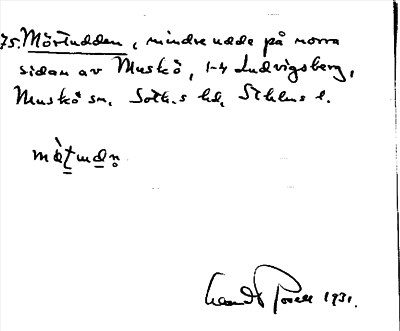 75. Mörtudden, mindre udde på norra
sidan av Muskö, 1-4 Ludvigsberg,
Muskö sn. Soth.s hd, Sthlms l.
1931.